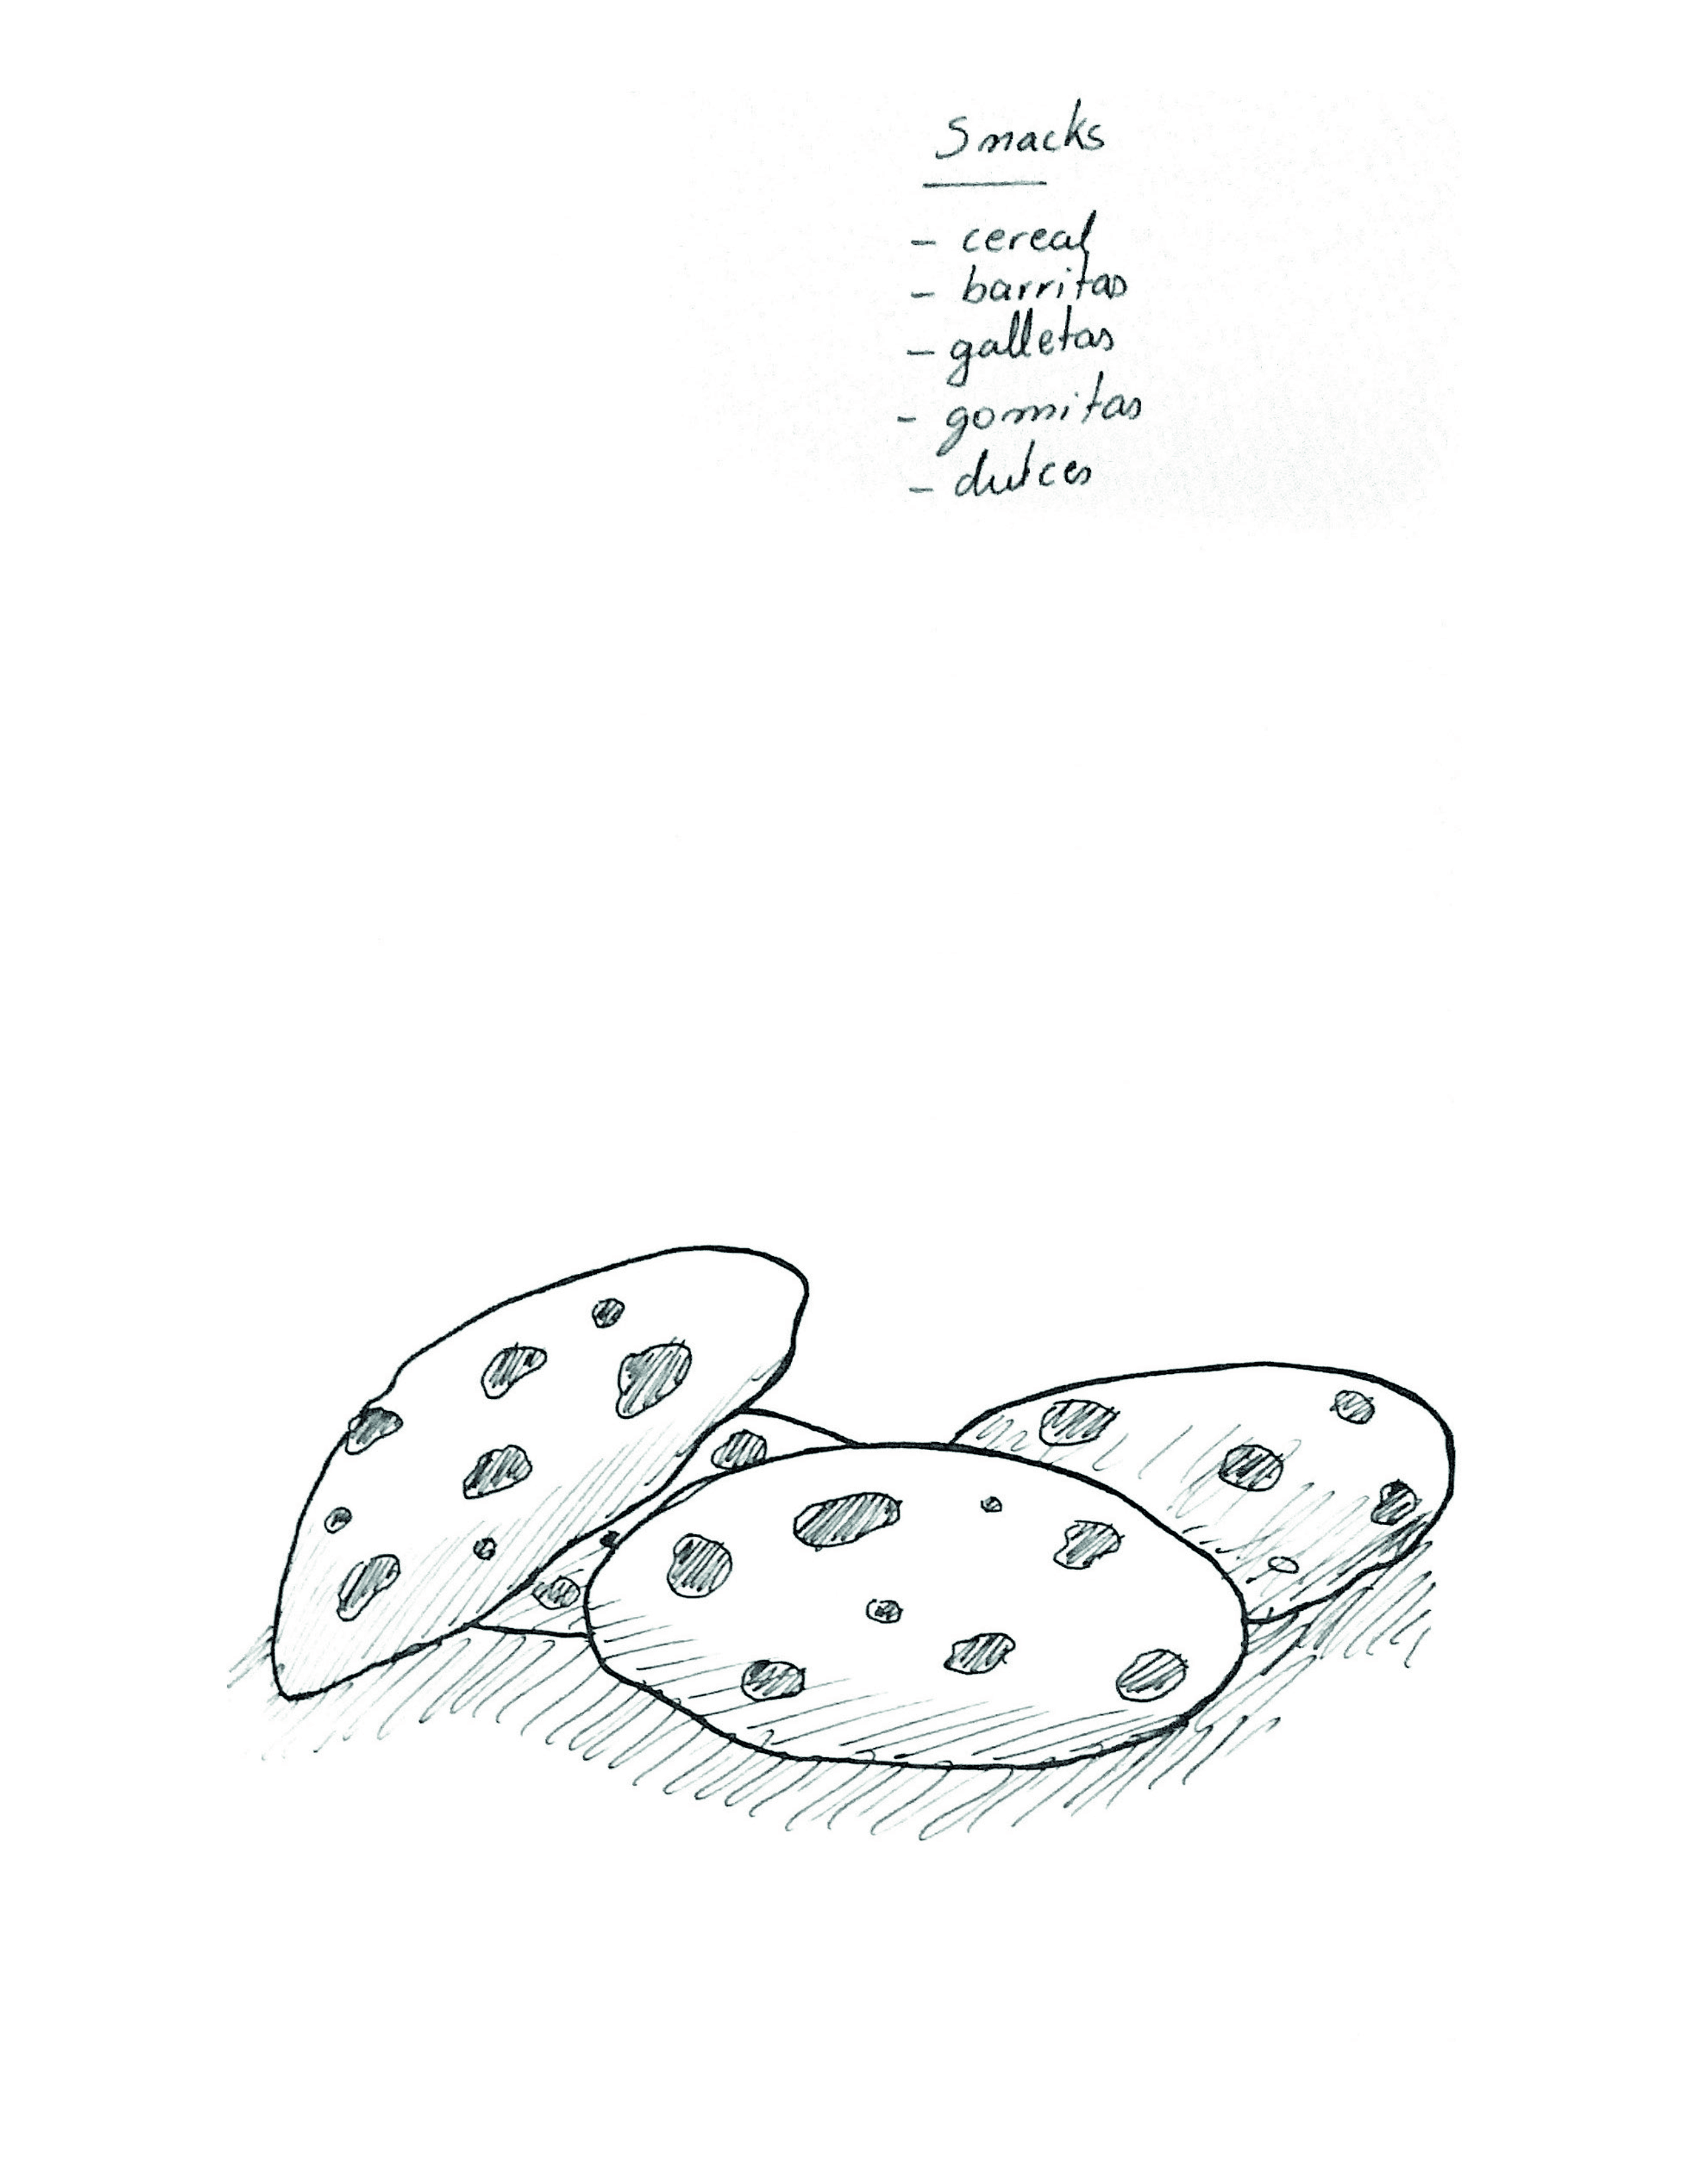 Snacks
- cereal
- barritas
- galletas
- gomitas
- dulces